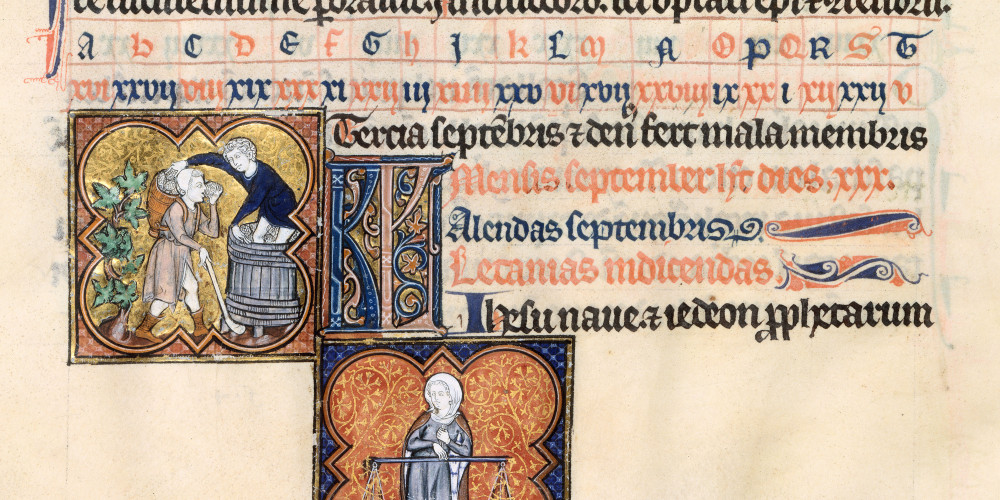 A b C d E f G h I k L M N O P Q R S T
xvi xxvii viii xix xxx xi xxii iii xiiii xxv vi xvii xxviii ix xx i xii xxii v
Tercia septẽbris ⁊ denꝰ fert mala membris
Mensis september hꝫt dies. xxx.
KL
Alendas septembris.
Letanias indicendas.
Ihesu naue. ⁊ iedeon ꝓphetarum